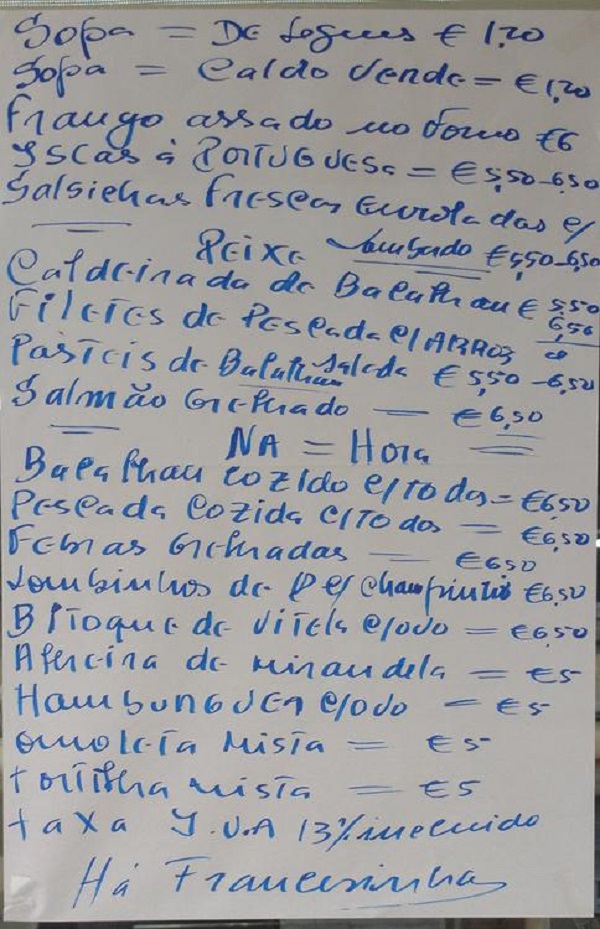 Sopa = De Legues € 1,20
Sopa = Caldo Verde = € 1,20
Frango assado no Forno €6
Iscas à Portuguesa = € 5,50-6,50
Salsichas Frescas enroladas c/
Peixe Lombardo €5,50-6,50
Caldeirada de Bacalhau € 5,50
6,50
Filetes de Pescada c/ARROZ
Pasteis de Bacalhau Salada € 5,50-6,50
Salmão Grelhado — € 6,50
NA = Hora
Bacalhau cozido c/Todos = €6,50
Pescada Cozida c/Todos = €6,50
Febras Grelhadas — €6,50
Lombinhos de P c/ Champinhõ €6,50
Bitoque de Vitela c/ovo = €6,50
Alheira de Mirandela = €5
Hamburguer c/ovo = €5
Omoleta Mista = €5
Tortilha mista = €5
taxa I.V.A 13% incluido
Há Francesinhas